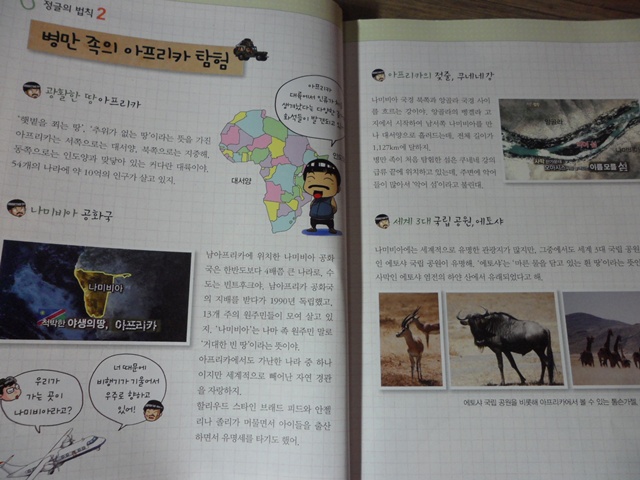 정글의 법칙 2
병만 족의 아프리카 탐험
광활한 땅 아프리카
'햇볕을 쬐는 땅', '추위가 없는 땅'이라는 뜻을 가진
아프리카는 서쪽으로는 대서양, 북쪽으로는 지중해,
동쪽으로는 인도양과 맞닿아 있는 커다란 대륙이야.
54개의 나라에 약 10억의 인구가 살고 있지.
아프리카
대륙에서 인류가
생겨났다는 다양한
화석들이 발
대서양
나미비아 공화국
나미비아
척박한 야생의 땅, 아프리카
남아프리카에 위치한 나미비아 공화
국은 한반도보다 4배쯤 큰 나라로, 수
도는 빈트후크야. 남아프리카 공화국
의 지배를 받다가 1990년 독립했고,
13개 주의 원주민들이 모여 살고 있
지. '나미비아'는 나마 족 원주민 말로
'거대한 빈 땅'이라는 뜻이야.
아프리카에서도 가난한 나라 중 하나
이지만 세계적으로 빼어난 자연 경관
을 자랑하지.
할리우드 스타인 브래드 피트와 안젤
리나 졸리가 머물면서 아이들을 출산
하면서 유명세를 타기도 했어.
우리가
가는 곳이
나미비아라고?
너 때문에
비행기가 기울어서
우주로 향하고
있어!
아프리카의 젖줄, 쿠네네 강
나미비아 국경 북쪽과 앙골라 국경 사이
를 흐르는 강이야. 앙골라의 벵겔라 고
지에서 시작하여 남서쪽 나미비아를 만
나 대서양으로 흘러드는데, 전체 길이가
1,127km에 달하지.
병만 족이 처음 탐험한 섬은 쿠네네 강의
급류 끝에 위치하고 있는데, 주변에 악어
들이 많아서 '악어 섬'이라고 불린대.
앙골라
이름 모를 섬!
세계 3대 국립 공원, 에토샤
나미비아에는 세계적으로 유명한 관광지가 많지만, 그중에서도 세계 3대 국립 공원
인 에토샤 국립 공원이 유명해. '에토샤'는 '마른 물을 담고 있는 흰 땅'이라는 뜻이
사막인 에토샤 염전의 하얀 산에서 유래되었다고 해.
에토샤 국립 공원을 비롯해 아프리카에서 볼 수 있는 톰슨가젤,